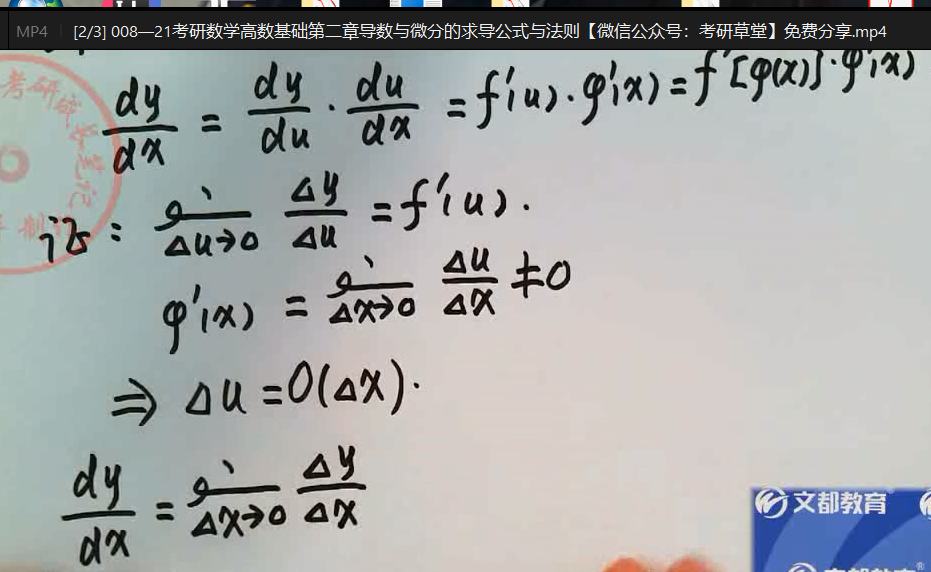 MP4 [2/3] 008—21考研数学高数基础第二章导数与微分的求导公式与法则【微信公众号：考研草堂】免费分享.mp4
dy/dx = dy/du · du/dx = f'(u)·φ'(x) = f'[φ(x)]·φ'(x)
证: lim Δu→0 Δy/Δu = f'(u).
φ'(x) = lim Δx→0 Δu/Δx ≠0
⇒ Δu = O(Δx).
dy/dx = lim Δx→0 Δy/Δx
文都教育